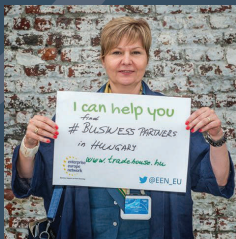 I can help you
find
# BUSINESS PARTNERS
in HUNGARY
www.tradehouse.hu
enterprise
europe
network
@EEN_EU